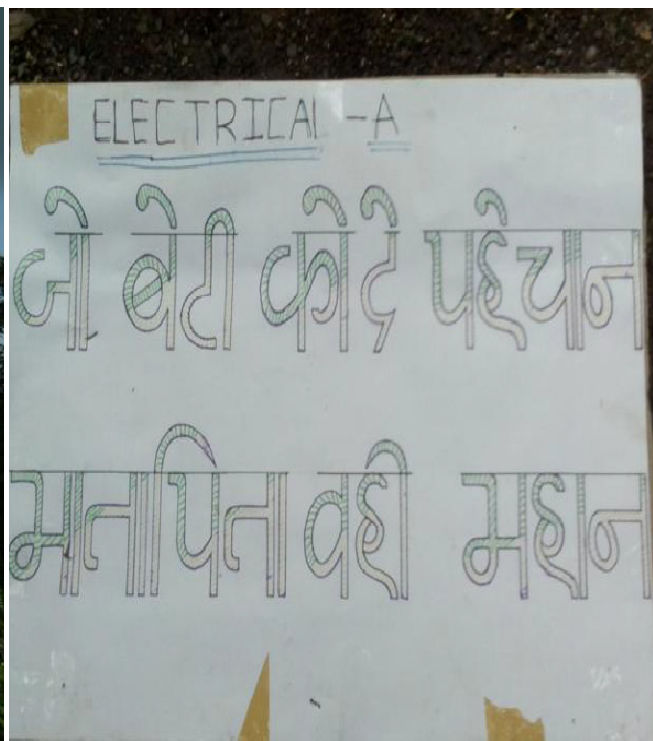 ELECTRICAL -A
जो बेटी को दे पहेचान
मातापिता वही महान